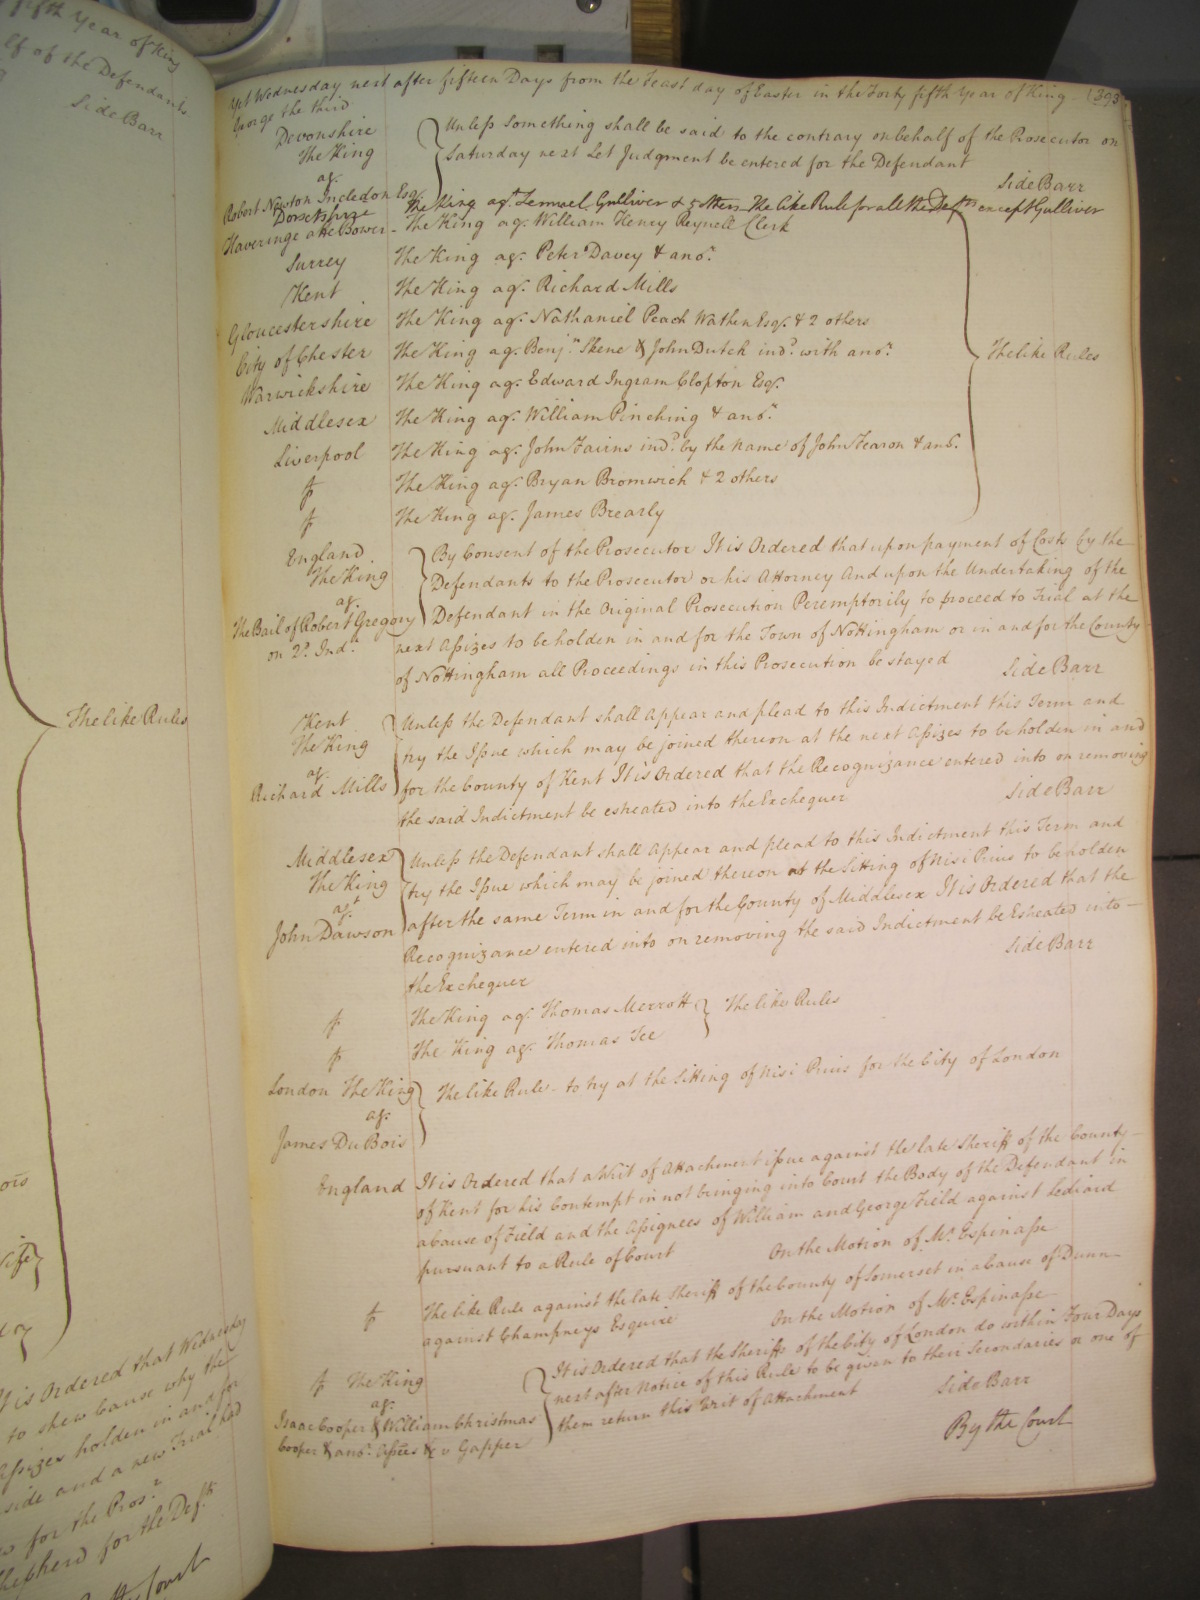 fifth Year of King
lf of the Defendants
Side Barr
The like Rules
It is Ordered that Wednesday
to shew Cause why the
Assizes holden in and for
side and a new Trial had
for the Prosr
Shepherd for the Defts
Court
Yet Wednesday next after fifteen Days from the Feast day of Easter in the Forty fifth Year of King (393
George the third
Devonshire
The King
agt
Robert Newton Incledon Esqr
Unless Something shall be said to the contrary on behalf of the Prosecutor on
Saturday next Let Judgment be entered for the Defendant
Side Barr
Dorsetshire The King agt Lemuel Gulliver & 5 others The like Rule for all the Defts except Gulliver
Haveringe atte Bower - The King agt William Henry Reynell Clerk
Surrey The King agt Peter Davey & anor
Kent The King agt Richard Mills
Gloucestershire The King agt Nathaniel Peach Wathen Esqr & 2 others
City of Chester The King agt Benjn Skene & John Dutch indd with anor
The like Rules
Warwickshire The King agt Edward Ingram Clopton Esqr
Middlesex The King agt William Pinching & anor
Liverpool The King agt John Fairns indd by the name of John Fearon & anr
The King agt Bryan Bromwich & 2 others
The King agt James Brearly
England
The King
agt
The Bail of Robert Gregory
on 2d Indt
By Consent of the Prosecutor It is Ordered that upon payment of Costs by the
Defendants to the Prosecutor or his Attorney And upon the Undertaking of the
Defendant in the Original Prosecution Peremptorily to proceed to Trial at the
next Assizes to be holden in and for the Town of Nottingham or in and for the County
of Nottingham all Proceedings in this Prosecution be stayed
Side Barr
Kent
The King
agt
Richard Mills
Unless the Defendant shall appear and plead to this Indictment this Term and
try the Issue which may be joined thereon at the next Assizes to be holden in and
for the County of Kent It is Ordered that the Recognizance entered into on removing
the said Indictment be esheated into the Exchequer
Side Barr
Middlesex
The King
agt
John Dawson
Unless the Defendant shall appear and plead to this Indictment this Term and
try the Issue which may be joined thereon at the Sitting of Nisi Prius to be holden
after the same Term in and for the County of Middlesex It is Ordered that the
Recognizance entered into on removing the said Indictment be Esheated into
the Exchequer
Side Barr
The King agt Thomas Merrott
The King agt Thomas Tee
The like Rules
London The King
agt
James Du Bois
The like Rule - to try at the Sitting of Nisi Prius for the City of London
England It is Ordered that a Writ of Attachment issue against the late Sheriff of the County
of Kent for his Contempt in not bringing into Court the Body of the Defendant in
a Cause of Field and the Assignees of William and George Field against Lediard
pursuant to a Rule of Court On the Motion of Mr Espinasse
The like Rule against the late Sheriff of the County of Somerset in a Cause of Dunn
against Champneys Esquire On the Motion of Mr Espinasse
The King
agt
Isaac Cooper & William Christmas
Cooper & anor Assees &c v Gapper
It is Ordered that the Sheriffs of the City of London do within Four Days
next after Notice of this Rule to be given to their Secondaries or one of
them return this Writ of Attachment
Side Barr
By the Court